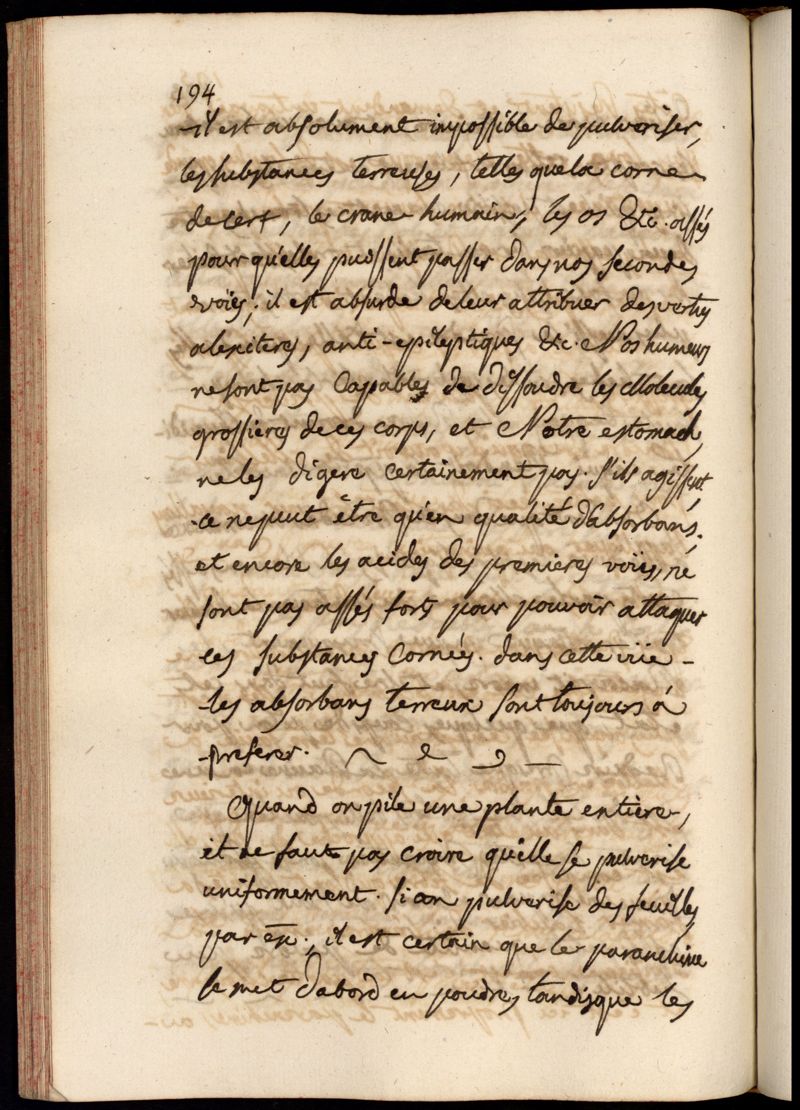 194
il est absolument impossible de pulveriser,
les substances terreuses, telles que la corne
de cerf, le crane humain, les os &c. assés
pour qu'elles puissent passer dans nos secondes
voies; il est absurde de leur attribuer des vertus
alexiteres, anti-epileptiques &c. Nos humeurs
ne sont pas Capables de dissoudre les Molecules
grossieres de ces corps, et Notre estomach,
ne les digere certainement pas. s'ils agissent
ce ne peut être qu'en qualité d'absorbans.
et encore les acides des premieres voïes, ne
sont pas assés forts pour pouvoir attaquer
ces substances Cornées. dans cette vüe -
les absorbans terreux sont toujours á
preferer.
Quand on pile une plante entiere,
il ne faut pas croire qu'elle se pulverise
uniformement. si on pulverise des feuilles,
par ex., il est certain que le paranchime
se met d'abord en poudre, tandisque les